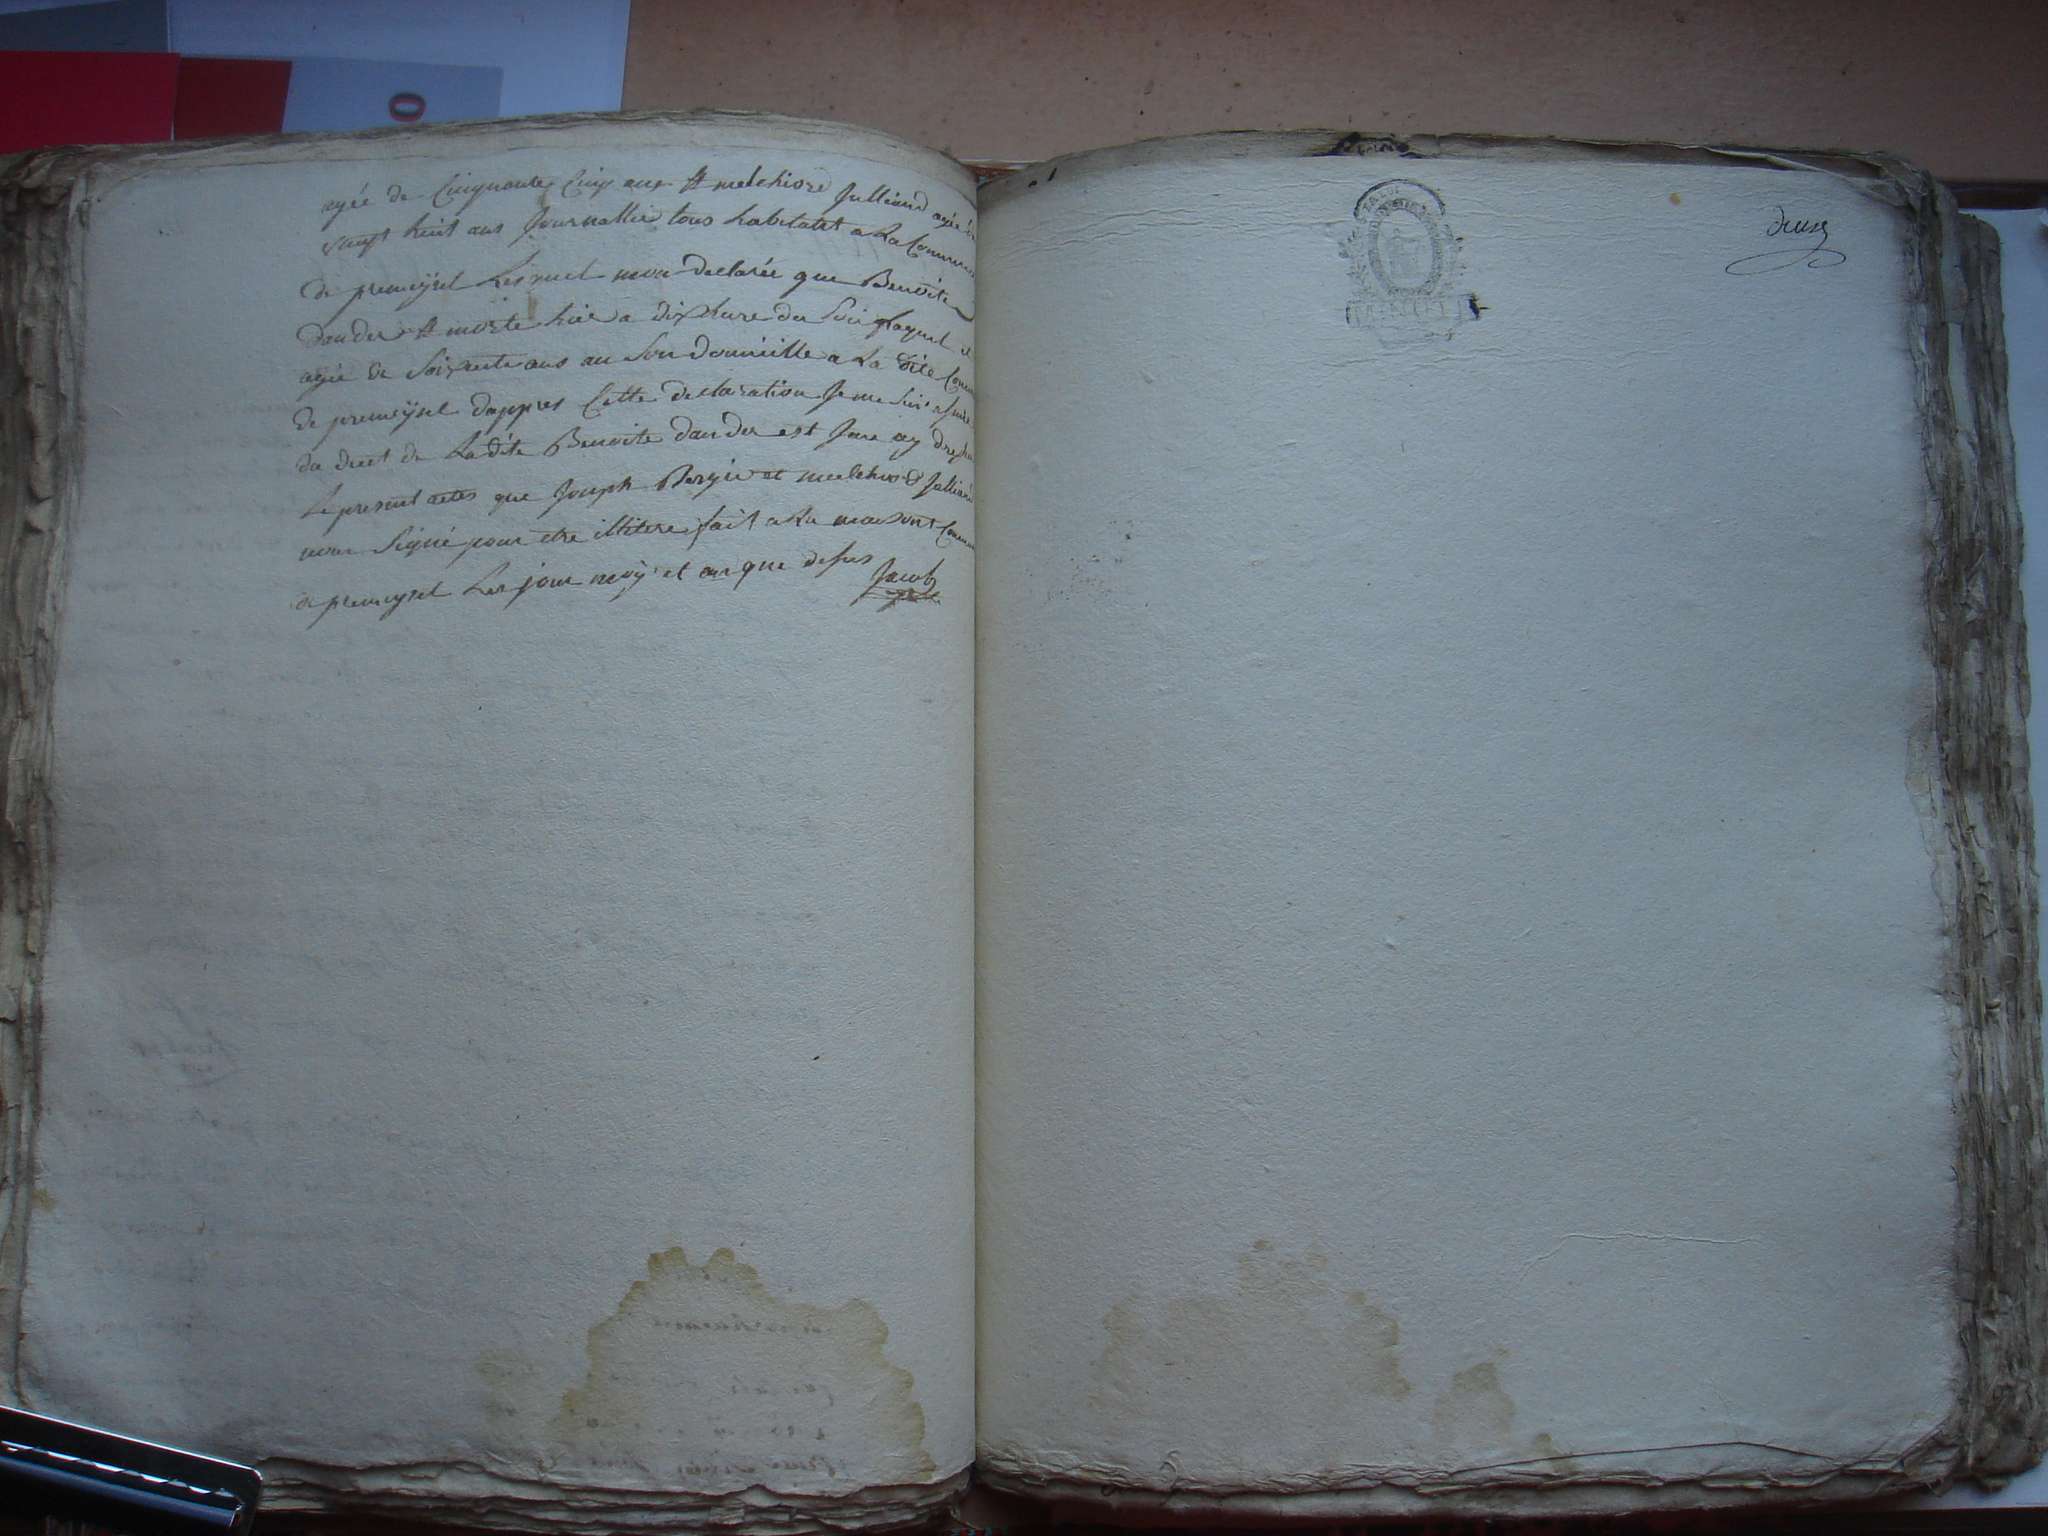 agée de Cinquante Cinq ans et melchiore Julliand agée de
vingt huit ans Journallie tous habitatst a La Commun
de premeysel Lesquel mon declarée que Benoite
Dander et morte hier a dix heure du Soir
agée de Soixante ans au Son domicille a La dite Commu
de premeysel dappres Cette declaration Je me Suis
du decet de La dite Benoite dander est Jane ay
Le present actes que Joseph Bergie et melchiord Julliand
non Signé pour etre illitere fait a La maisont Commun
de premeysel Les jour moy et an que desus Jacob
deux